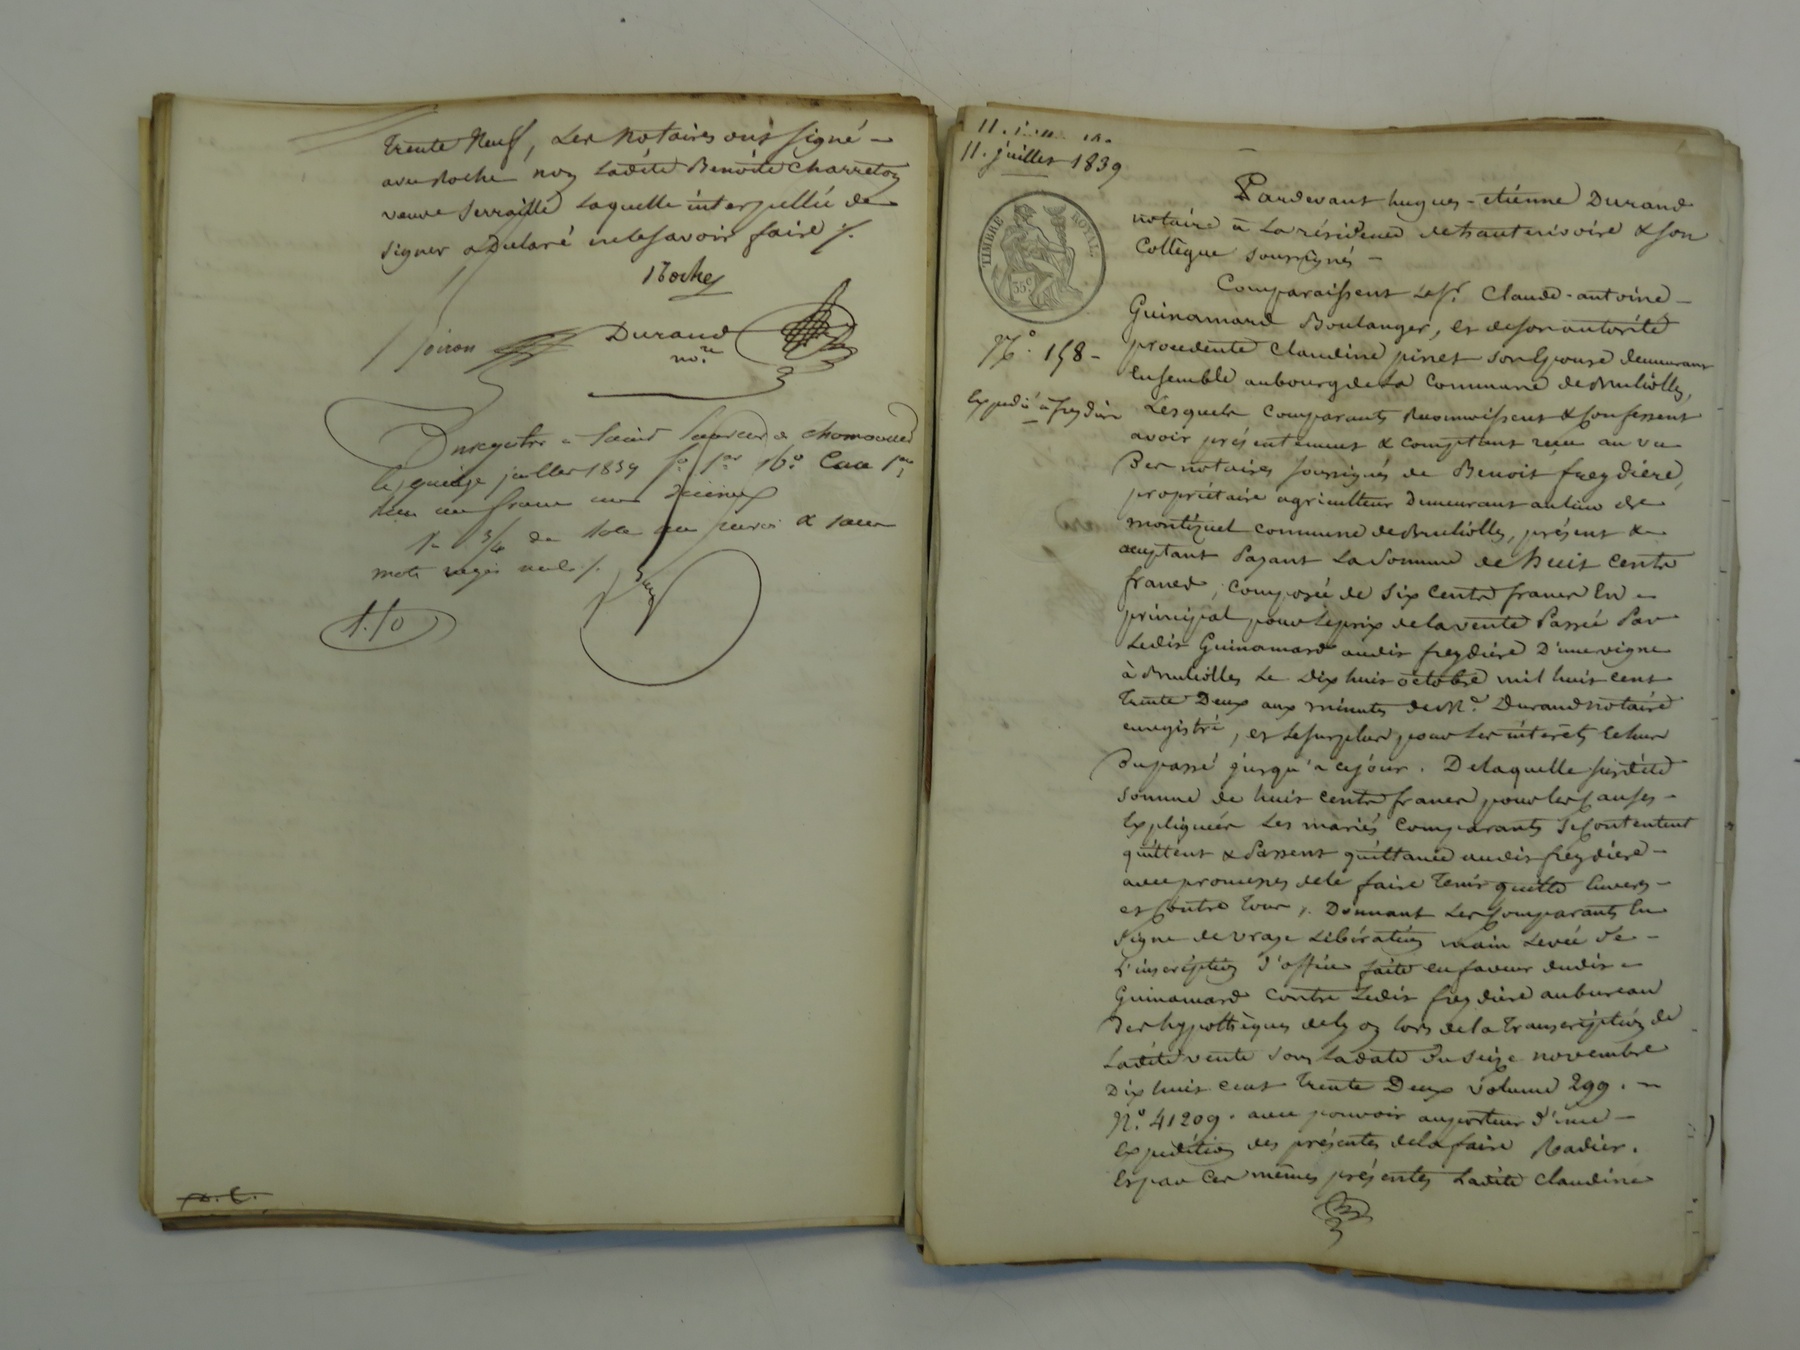 trente neuf, Les Notaires ont signé –
avec Roche non Ladite Benoite Charreton
veuve Serraille Laquelle interpellée de
signer a Déclaré ne le savoir faire /.
Roche
Joiron Durand
no.re
Enregistré à Saint Laurent de chamousset
le quinze juillet 1839 f.o 1er V.o Case 1re
un franc décimes
mots rayés nuls /.
11. juillet 1839
TIMBRE ROYAL
35c
N.o 158 –
Expédié à freydière
Pardevant hugues-etiénne Durand
notaire à La résidence de hauterivoire & son
Collègue soussignés –
Comparaissent Le Sr. Claude-antoine –
Guinamard Boulanger, et de son autorité
procédente Claudine pinet son Epouse demeurant
Ensemble au bourg de La Commune de Brullioles,
Lesquels Comparants Reconnoissent & Confessent
avoir présentement & comptant reçu au vu
Des notaires soussignés de Benoit freydière,
propriétaire agriculteur Demeurant au lieu de
commune de Brullioles, présent &
acceptant Payant La Somme de huit Cents
francs, Composée de Six Cents francs En –
principal pour le prix de la vente Passée Par
Ledit Guinamard audit freydière D'une vigne
à Brullioles Le Dix huit octobre mil huit cent
trente Deux aux minutes de M.e Durand notaire
enregistré, et le surplus pour Les intérêts Echus
Du passé jusqu'à ce jour. De laquelle susdite
Somme de huit cents francs pour les Causes –
Expliquées Les mariés Comparants Se Contentent
quittent & Passent quittance audit freydière –
avec promesses de le faire Tenir quitte Envers –
et Contre Tous /. Donnant Les Comparants En
Signe de vraye Libération main Levée de –
L'inscription D'office faite en faveur dudit –
Guinamard contre Ledit freydière au bureau
Des hypothèques de Lyon lors de la Transcription de
Ladite vente sous La date Du Seize novembre
Dix huit cent trente Deux volume 299. –
N.o 41209. avec pouvoir au porteur d'une –
Expédition des présentes de la faire Radier.
Et par Ces mêmes présentes Ladite Claudine